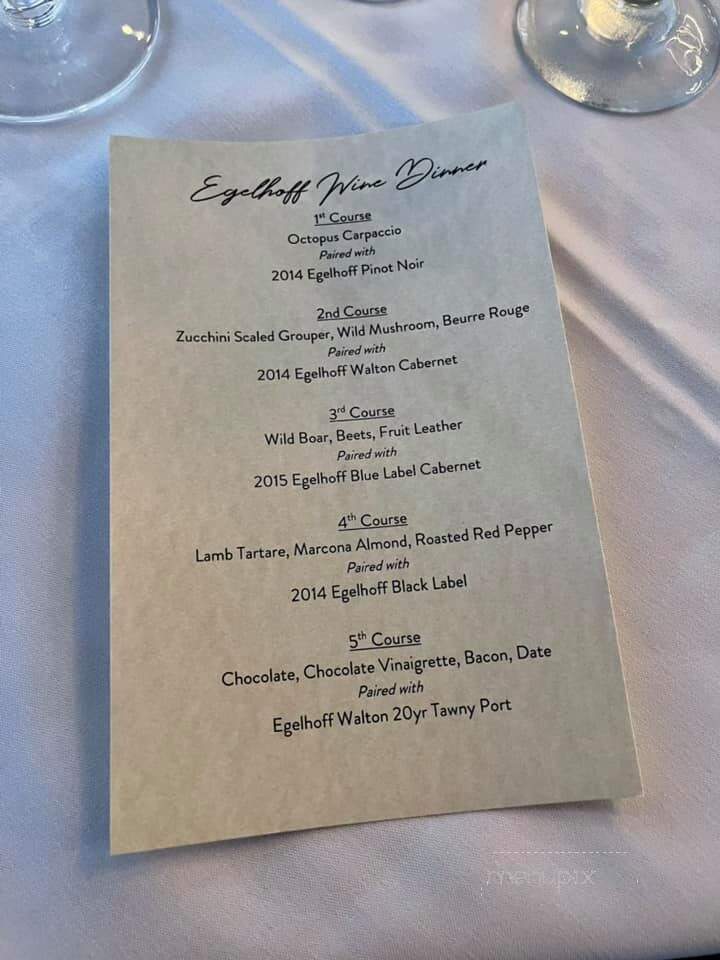 Egelhoff Wine Dinner
1st Course
Octopus Carpaccio
Paired with
2014 Egelhoff Pinot Noir
2nd Course
Zucchini Scaled Grouper, Wild Mushroom, Beurre Rouge
Paired with
2014 Egelhoff Walton Cabernet
3rd Course
Wild Boar, Beets, Fruit Leather
Paired with
2015 Egelhoff Blue Label Cabernet
4th Course
Lamb Tartare, Marcona Almond, Roasted Red Pepper
Paired with
2014 Egelhoff Black Label
5th Course
Chocolate, Chocolate Vinaigrette, Bacon, Date
Paired with
Egelhoff Walton 20yr Tawny Port
menupix